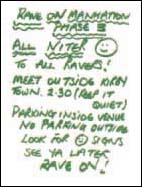 RAVE ON MANHATION
PHASE 3
ALL NITER
TO ALL RAVERS!
MEET OUTSIDE KIRBY
TOWN. 2:30 (KEEP IT
QUIET)
PARKING INSIDE VENUE
NO PARKING OUTSIDE
LOOK FOR SIGNS
SEE YA LATER
RAVE ON!